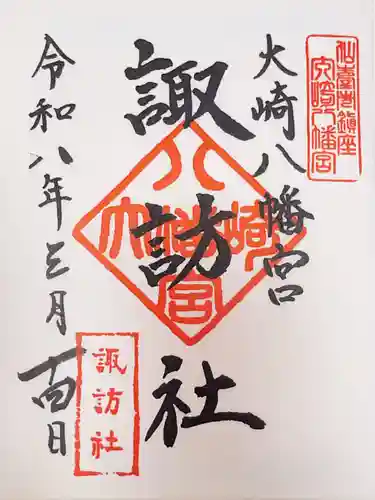 仙臺鎮座
大崎八幡宮
大崎八幡宮
諏訪社
大崎八幡宮
令和八年三月日
諏訪社